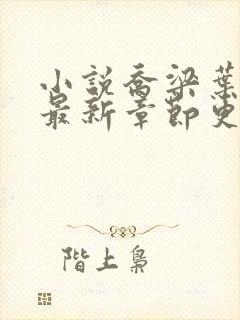 小說喬梁葉
最新章節更
階上梟